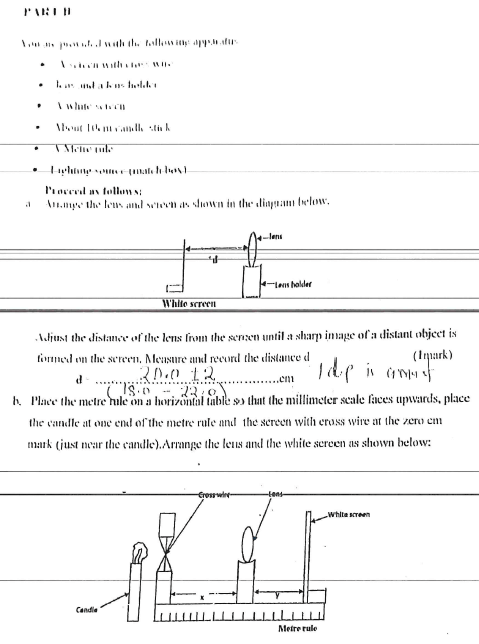 PART II
You are provided with the following apparatus
• A screen with cross wire
• lens and a lens holder
• A white screen
• About 10cm candle stick
• A Metre rule
• Lighting source (match box)
Proceed as follows:
a Arrange the lens and screen as shown in the diagram below.
lens
d
Lens holder
White screen
Adjust the distance of the lens from the screen until a sharp image of a distant object is
formed on the screen. Measure and record the distance d (1mark)
d = ........20.0 ± 2............cm 1dp is a must
(18.0 – 22.0)
b. Place the metre rule on a horizontal table so that the millimeter scale faces upwards, place
the candle at one end of the metre rule and the screen with cross wire at the zero cm
mark (just near the candle).Arrange the lens and the white screen as shown below:
Cross wire
Lens
White screen
x
y
Candle
Metre rule